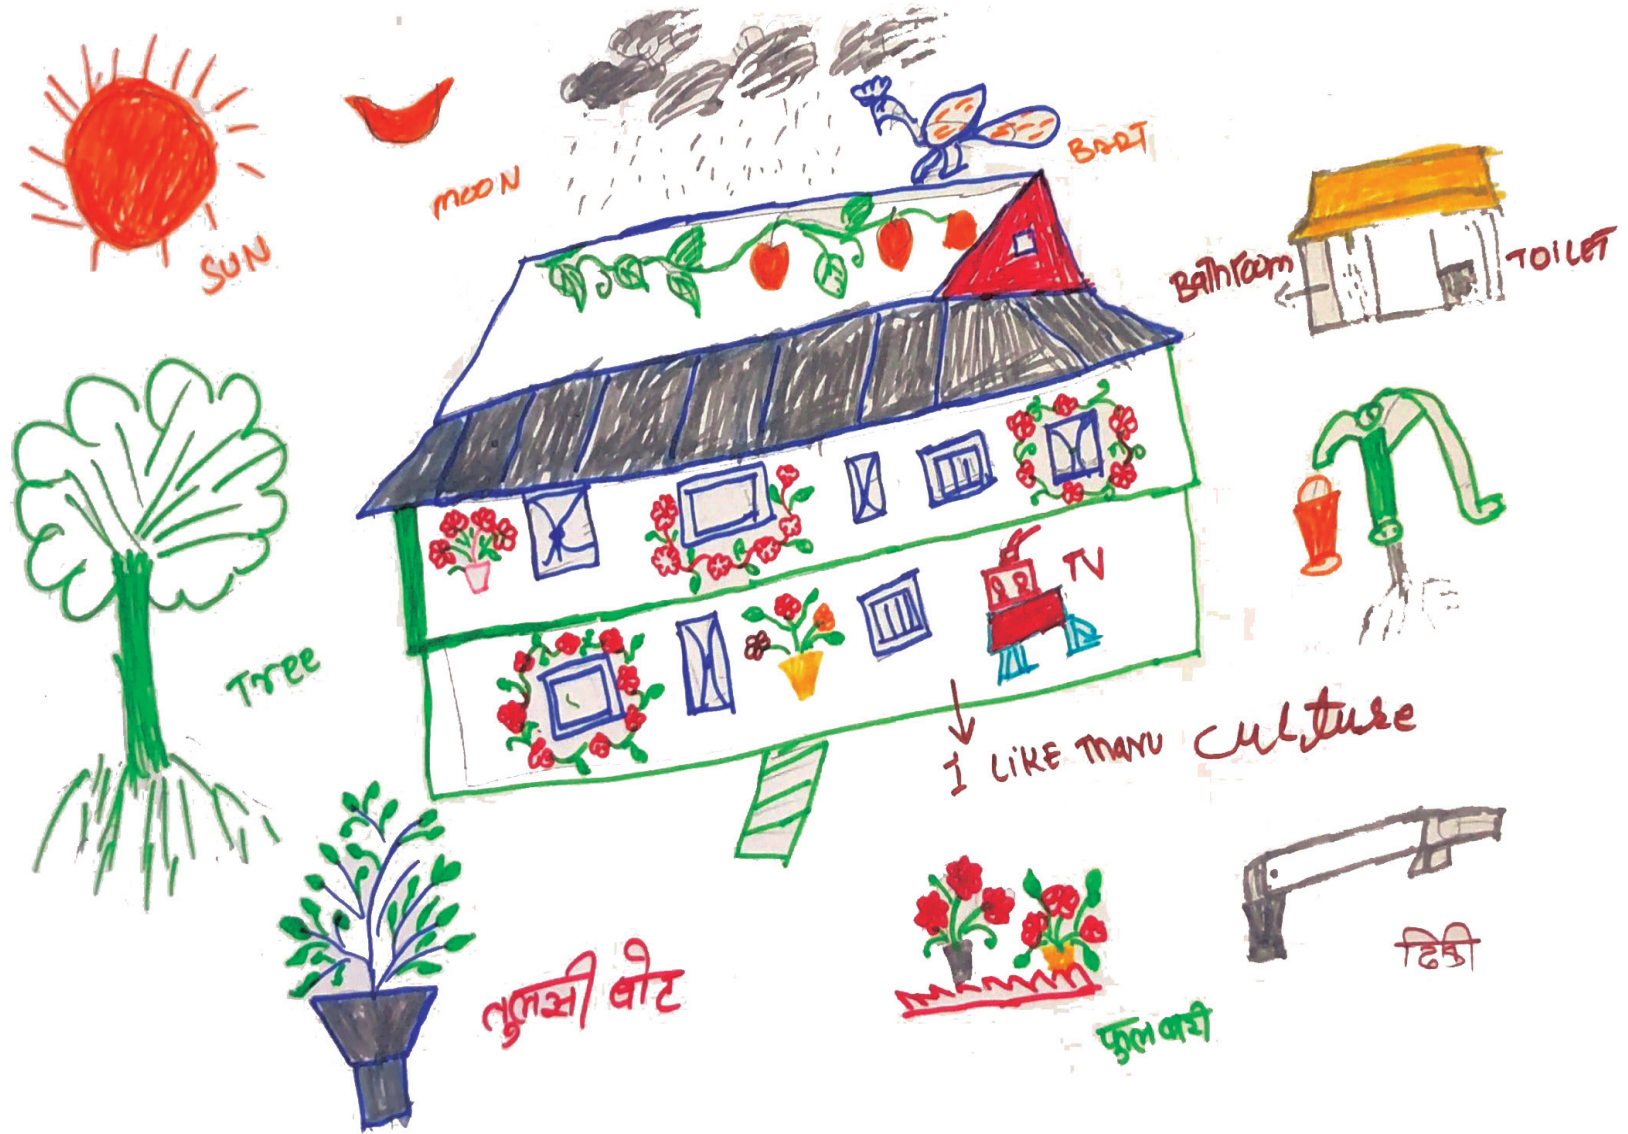 SUN
MOON
BART
Bathroom
TOILET
Tree
TV
I LIKE THARU CULTURE
तुलसी बोट
फुलबारी
ढिकी